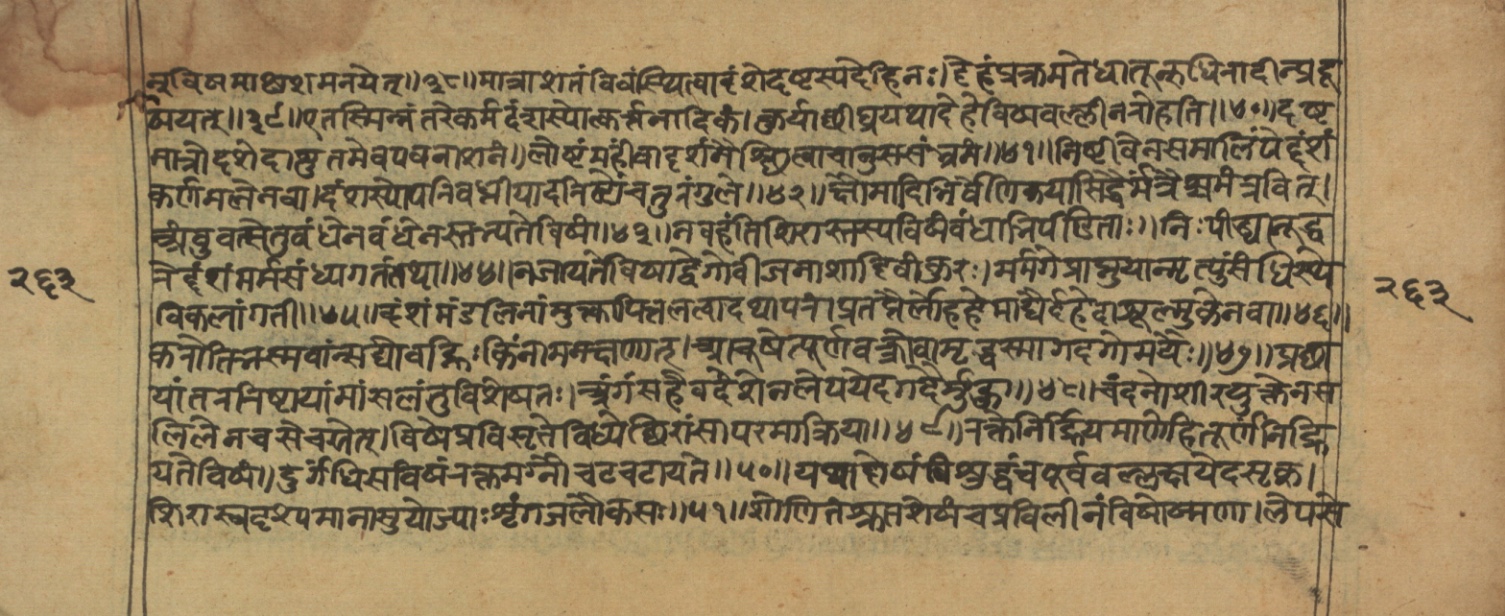 नुविषमाश्वाशमनयेत्॥३८॥मात्राशतंविषंस्थित्वादंशेदष्टस्यदेहिनः।देहंप्रक्रमतेधातून्रुधिरादीन्प्रदू
षयत्॥३९॥एतस्मिन्नंतरेकर्मदंशस्योत्कर्त्तनादिकं।कुर्याच्छीघ्रयथादेहेविषवल्लीनरोहति॥४०॥दष्ट
मात्रोदशेदाशुतमेवपवनाशनं॥लोष्टंमहींवादशनैश्छित्वाचानुससंभ्रमं॥४१॥निष्ठीवेनसमालिंपेद्दंशं
कर्णमलेनवा।दंशस्योपरिबध्नीयादरिष्टांचतुरंगुले॥४२॥क्षौमादिभिर्वेणिकयासिद्धैर्मंत्रैश्चमंत्रवित्।
अंबुवत्सेतुबंधेनबंधेनस्तभ्यतेविषं॥४३॥नवहंतिशिरास्तस्यविषंबंधाभिपीडिताः॥निःपीड्यानूद्ध
रेद्दंशंमर्मसंध्यगतंतथा॥४४॥नजायतेविषाद्वेगोबीजनाशादिवांकुरः।मर्मगेप्राप्नुयान्मृत्युंसंधिस्थे
विकलांगतां॥४५॥दंशंमंडलिनांमुक्त्वापित्तलत्वादथापरं।प्रतप्तैर्लोहहेमाद्यैर्दहेदाशूल्मुकेनवा॥४६॥
करोतिभस्मवान्सद्योवह्निःकिंनामनक्षणात्।आचूषेत्पूर्णवक्त्रोवामृद्भस्मागदगोमयैः॥४७॥प्रछा
यांतररिष्टायांमांसलंतुविशेषतः।अंगंसहैवदंशेनलेपयेदगदैर्मुहुः॥४८॥चंदनोशीरयुक्तेनस
लिलेनचसेचयेत्।विषेप्रविसृतेविध्येच्छिरांसापरमाक्रिया॥४९॥रक्तेनिर्ह्रियमाणेहितूर्णंनिर्ह्रि
यतेविषं॥दुर्गंधिसविषंरक्तमग्नौचटचटायते॥५०॥यथादोषंविशुद्धंचपूर्ववल्लक्षयेदसृक्।
शिरास्वदृश्यमानासुयोज्याःशृंगजलौकसः॥५१॥शोणितंस्रुतशेषंचप्रविलीनंविषोष्मणा।लेपसे
२६३
२६३